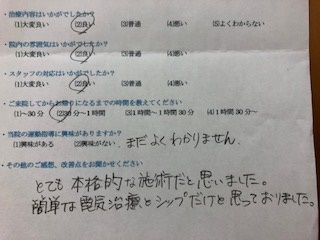 ・治療内容はいかがでしたか？
(1)大変良い (2)良い (3)普通 (4)悪い (5)よくわからない
・院内の雰囲気はいかがでしたか？
(1)大変良い (2)良い (3)普通 (4)悪い
・スタッフの対応はいかがでしたか？
(1)大変良い (2)良い (3)普通 (4)悪い
・ご来院してからお帰りになるまでの時間を教えてください
(1)～30分 (2)30分～1時間 (3)1時間～1時間30分 (4)1時間30分～
・当院の運動指導に興味がありますか？
(1)興味がある (2)興味がない、まだよくわかりません
・その他のご感想、改善点をお聞かせください
とても本格的な施術だと思いました。
簡単な電気治療とシップだけと思っておりました。